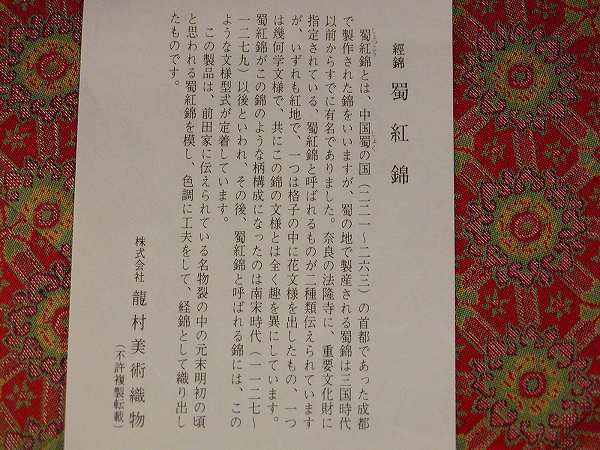 經錦
蜀紅錦
蜀紅錦とは、中国蜀の国（二二一～二六三）の首都であった成都
で製作された錦をいいますが、蜀の地で製産される蜀錦は三国時代
以前からすでに有名でありました。奈良の法隆寺に、重要文化財に
指定されている、蜀紅錦と呼ばれるものが二種類伝えられています
が、いずれも紅地で、一つは格子の中に花文様を出したもの、一つ
は幾何学文様で、共にこの錦の文様とは全く趣を異にしています。
蜀紅錦がこの錦のような柄構成になったのは南宋時代（一一二七～
一二七九）以後といわれ、その後、蜀紅錦と呼ばれる錦には、この
ような文様型式が定着しています。
この製品は、前田家に伝えられている名物裂の中の元末明初の頃
と思われる蜀紅錦を模し、色調に工夫をして、経錦として織り出し
たものです。
株式会社 龍村美術織物
（不許複製転載）